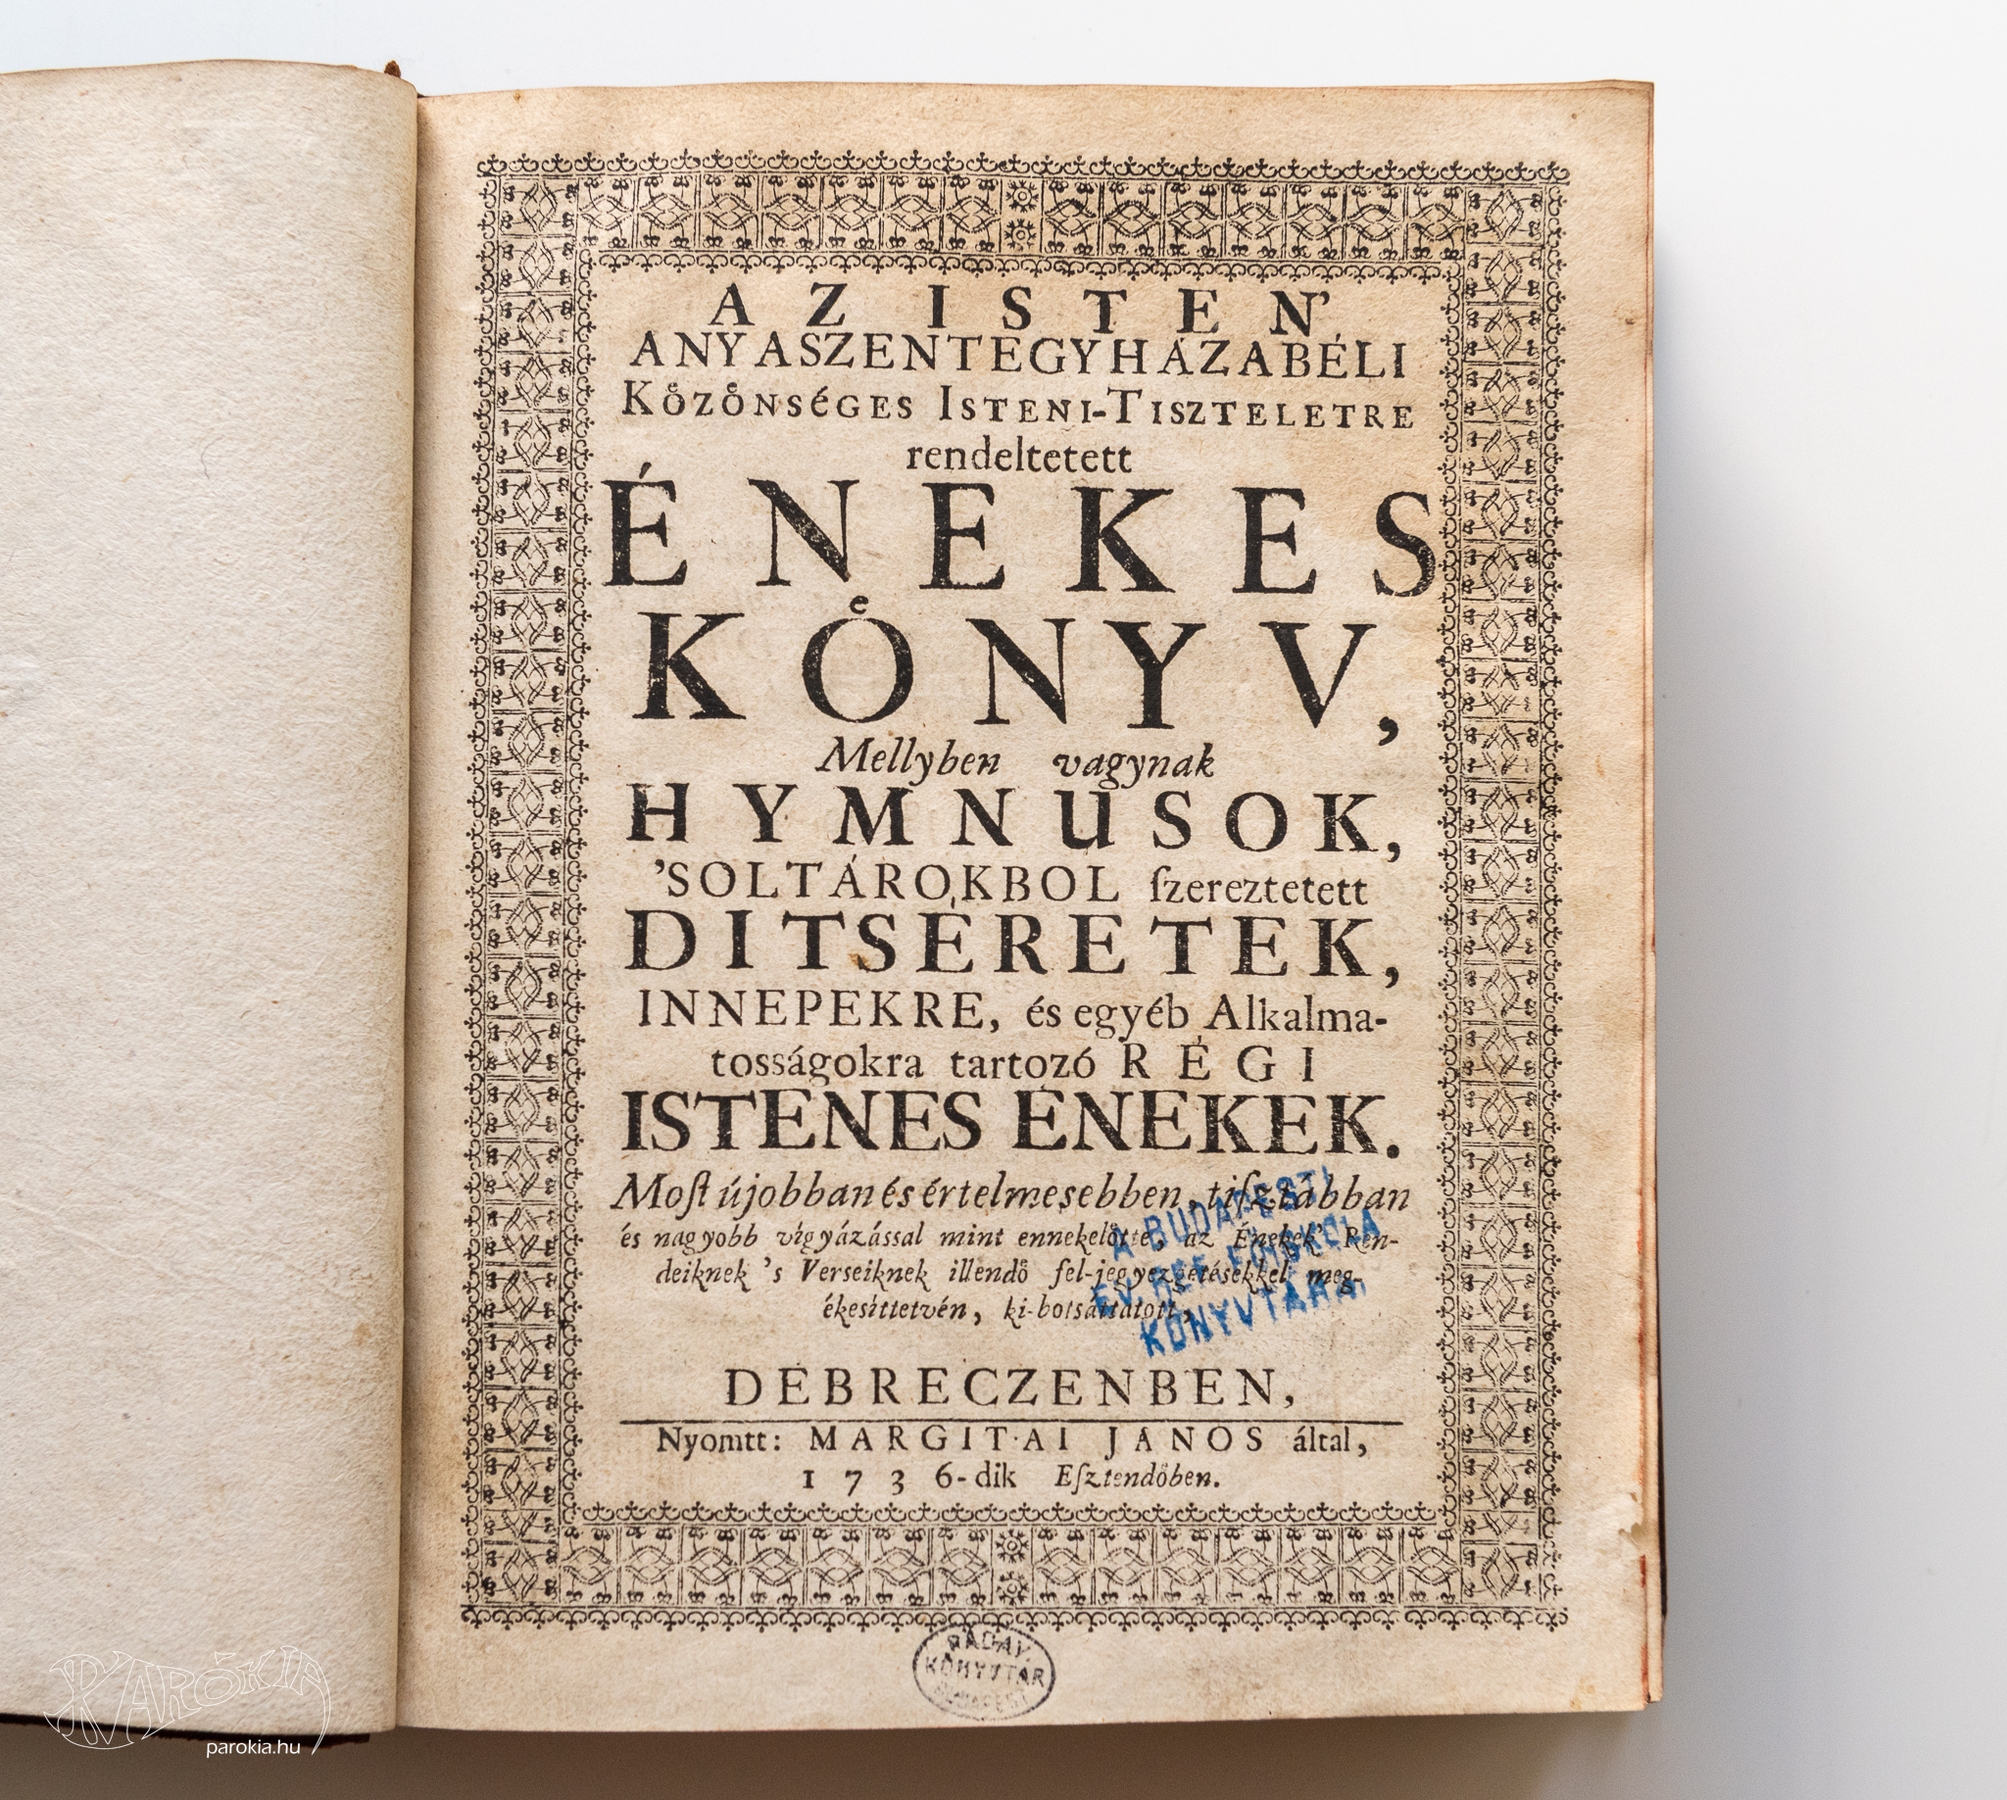 AZ ISTEN'
ANYASZENTEGYHÁZABÉLI
Kôzônséges Isteni-Tiszteletre
rendeltetett
ÉNEKES
KÖNYV,
Mellyben vagynak
HYMNUSOK,
'SOLTÁROKBOL ſzereztetett
DITSÉRETEK,
INNEPEKRE, és egyéb Alkalma-
tosságokra tartozó RÉGI
ISTENES ÉNEKEK.
Moſt újobban és értelmesebben, tiſztábban
és nagyobb vigyázással mint ennekelôtte, az Énekek' Ren-
deiknek 's Verseiknek illendô fel-jegyezgetésekkel meg-
ékesíttetvén, ki-botsáttatott,
A BUDAPESTI
EV. REF. FŐISKOLA
KÖNYVTÁRA
DEBRECZENBEN,
Nyomtt: MARGITAI JÁNOS által,
1736-dik Eſztendôben.
RÁDAY
KÖNYVTÁR
BUDAPEST
PARÓKIA
parokia.hu